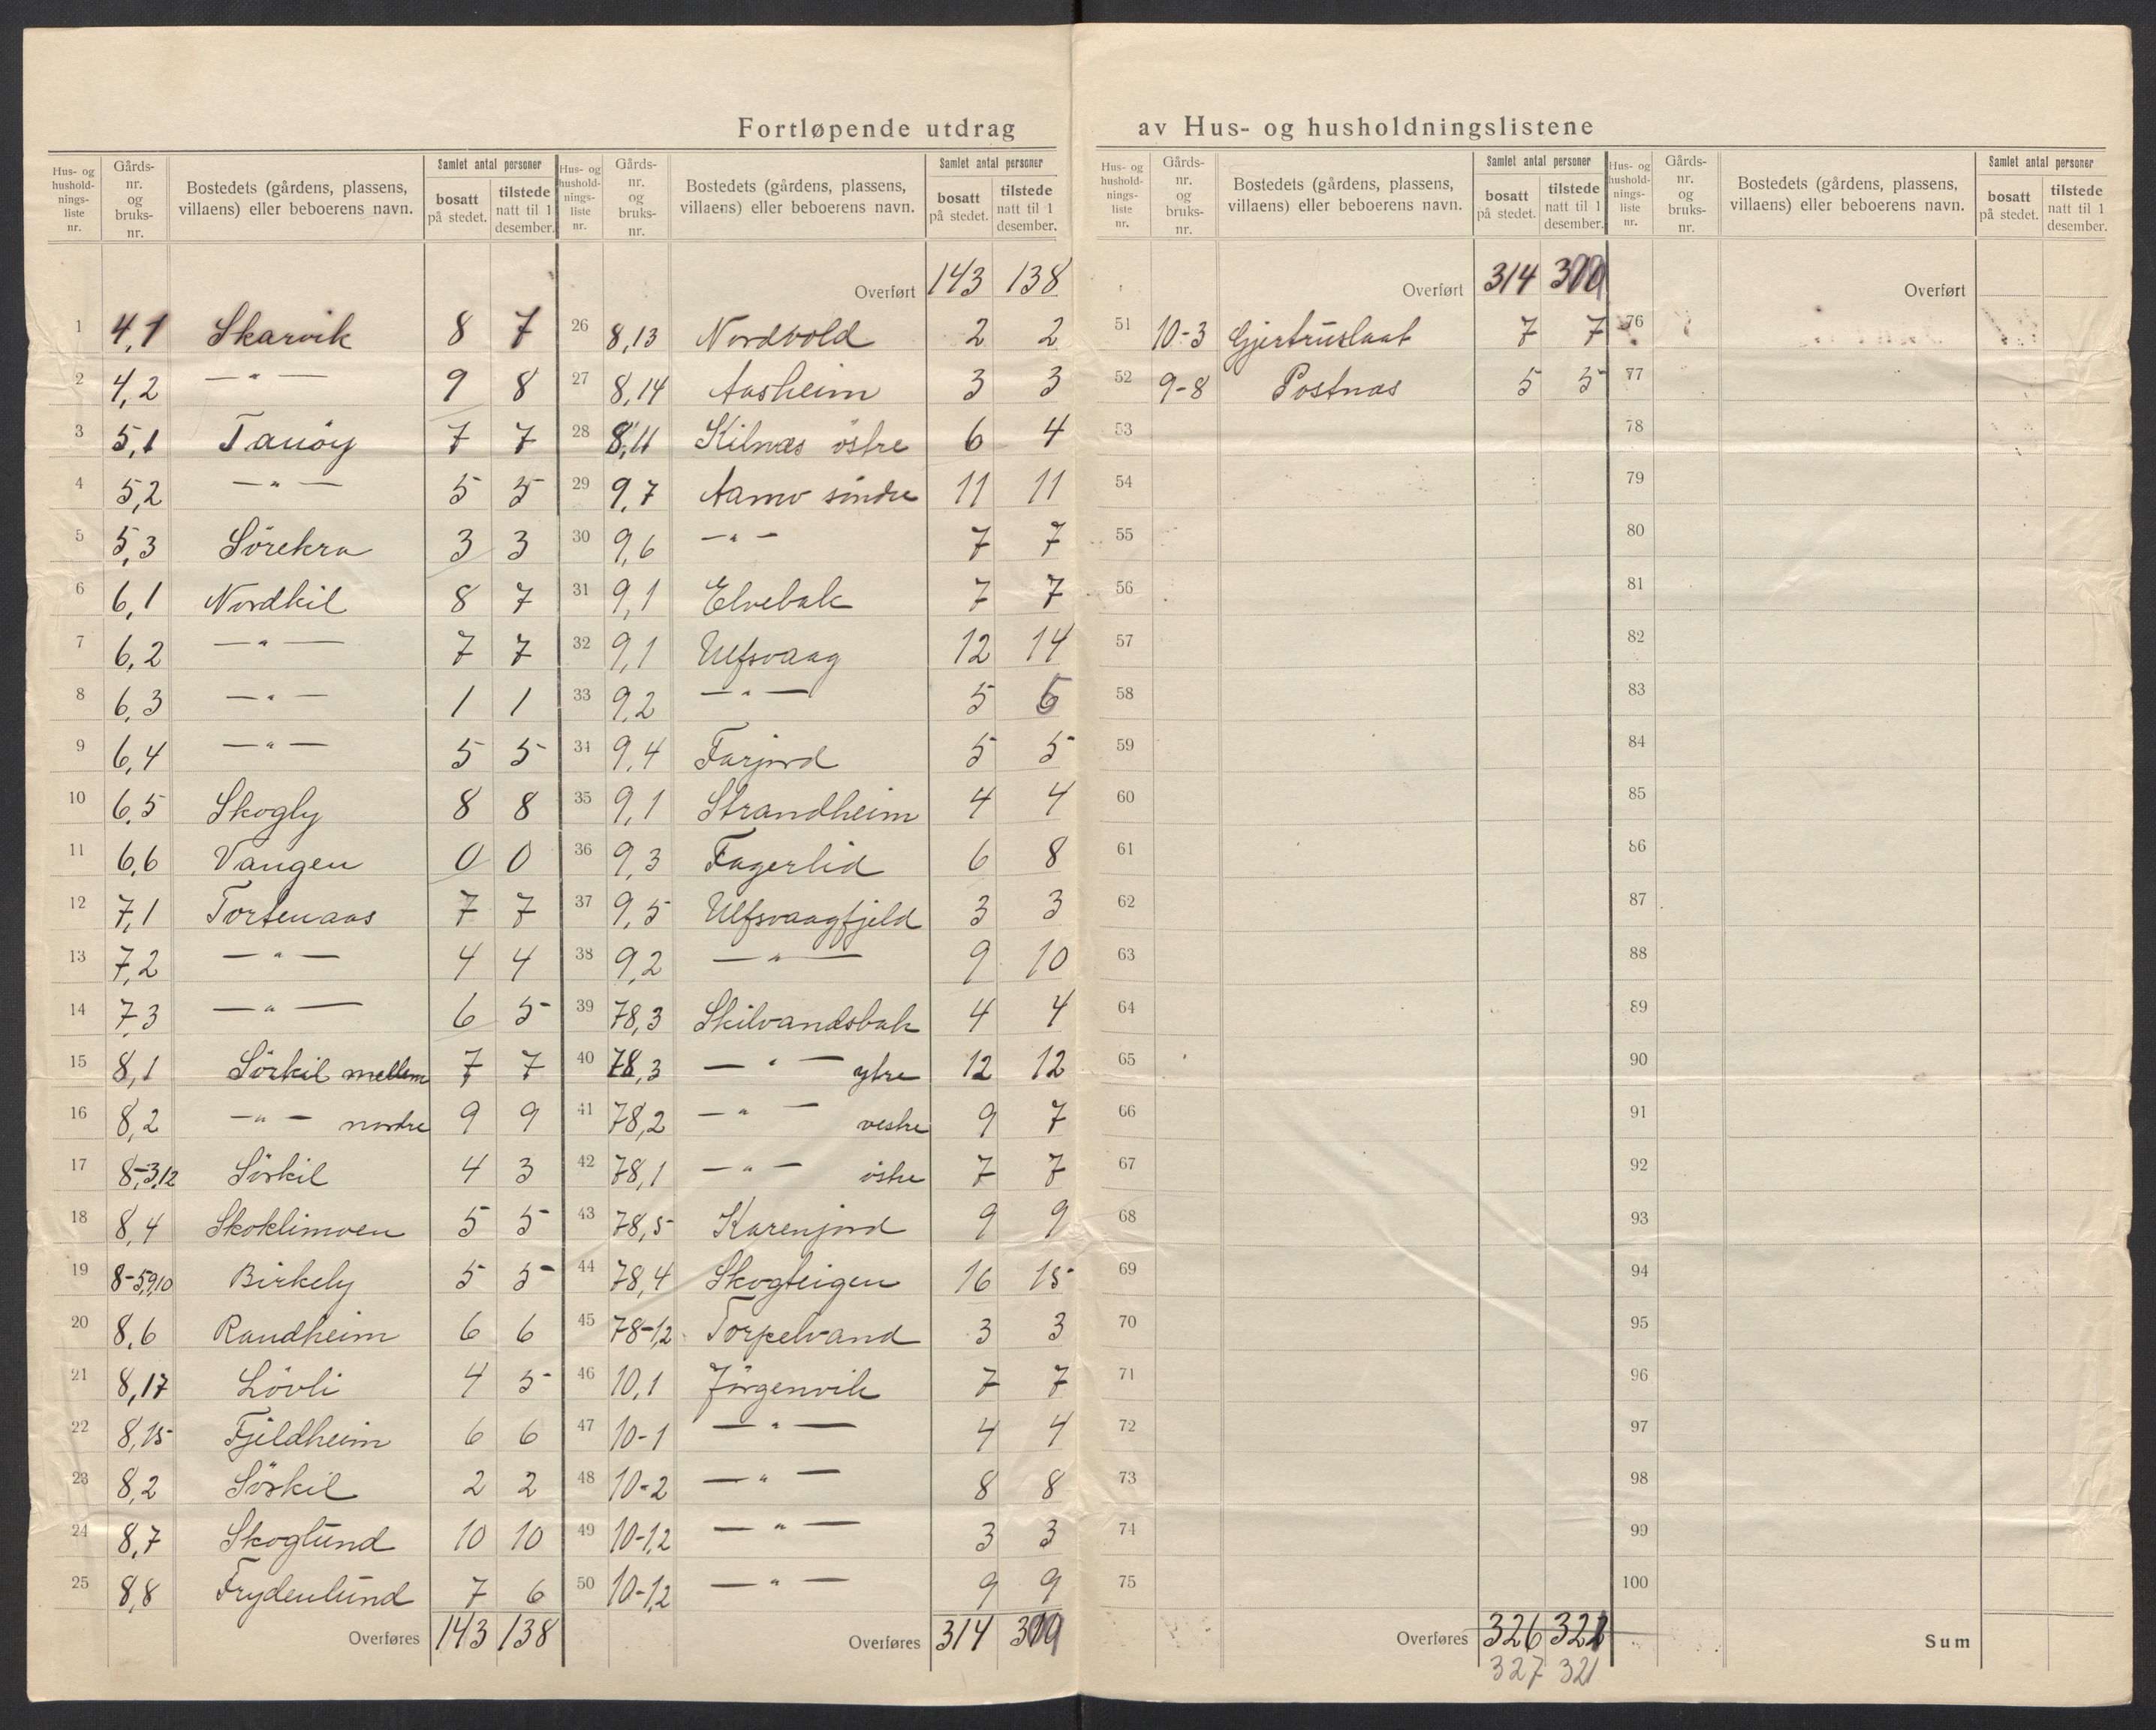 Fortløpende utdrag av Hus- og husholdningslistene
Hus- og husholdnings-liste nr. Gårds-nr. og bruks-nr. Bostedets (gårdens, plassens, villaens) eller beboerens navn. Samlet antal personer bosatt på stedet. tilstede natt til 1 desember.
1 4,1 Skarvik 8 7
2 4,2 — " — 9 8
3 5,1 Tanöy 7 7
4 5,2 — " — 5 5
5 5,3 Sörekra 3 3
6 6,1 Nordkil 8 7
7 6,2 — " — 7 7
8 6,3 — " — 1 1
9 6,4 — " — 5 5
10 6,5 Skogly 8 8
11 6,6 Vangen 0 0
12 7,1 Tortenaas 7 7
13 7,2 — " — 4 4
14 7,3 — " — 6 5
15 8,1 Sörkil mellem 7 7
16 8,2 — " — nordre 9 9
17 8-3,12 Sörkil 4 3
18 8,4 Skoklimoen 5 5
19 8-5,9,10 Birkely 5 5
20 8,6 Raudheim 6 6
21 8,17 Lövli 4 5
22 8,15 Fjeldheim 6 6
23 8,2 Sörkil 2 2
24 8,7 Skoglund 10 10
25 8,8 Frydenlund 7 6
Overføres 143 138
Hus- og husholdnings-liste nr. Gårds-nr. og bruks-nr. Bostedets (gårdens, plassens, villaens) eller beboerens navn. Samlet antal personer bosatt på stedet. tilstede natt til 1 desember.
Overført 143 138
26 8,13 Nordvold 2 2
27 8,14 Aasheim 3 3
28 8,11 Kilnæs östre 6 4
29 9,7 Aamo sindre 11 11
30 9,6 — " — 7 7
31 9,1 Elvebak 7 7
32 9,1 Ulfsvaag 12 14
33 9,2 — " — 5 6
34 9,4 Farjord 5 5
35 9,1 Strandheim 4 4
36 9,3 Fagerlid 6 8
37 9,5 Ulfsvaagfjeld 3 3
38 9,2 — " — 9 10
39 78,3 Skilvandsbak 4 4
40 78,3 — " — ytre 12 12
41 78,2 — " — vestre 9 7
42 78,1 — " — östre 7 7
43 78,5 Karenjord 9 9
44 78,4 Skogteigen 16 15
45 78-1,2 Torpelvand 3 3
46 10,1 Jörgenvik 7 7
47 10-1 — " — 4 4
48 10-2 — " — 8 8
49 10-1,2 — " — 3 3
50 10-1,2 — " — 9 9
Overføres 314 309
Hus- og husholdnings-liste nr. Gårds-nr. og bruks-nr. Bostedets (gårdens, plassens, villaens) eller beboerens navn. Samlet antal personer bosatt på stedet. tilstede natt til 1 desember.
Overført 314 309
51 10-3 Gjertruslaat 7 7
52 9-8 Postnas 5 5
53
54
55
56
57
58
59
60
61
62
63
64
65
66
67
68
69
70
71
72
73
74
75
Overføres 326 321
327 321
Hus- og husholdnings-liste nr. Gårds-nr. og bruks-nr. Bostedets (gårdens, plassens, villaens) eller beboerens navn. Samlet antal personer bosatt på stedet. tilstede natt til 1 desember.
Overført
76
77
78
79
80
81
82
83
84
85
86
87
88
89
90
91
92
93
94
95
96
97
98
99
100
Sum